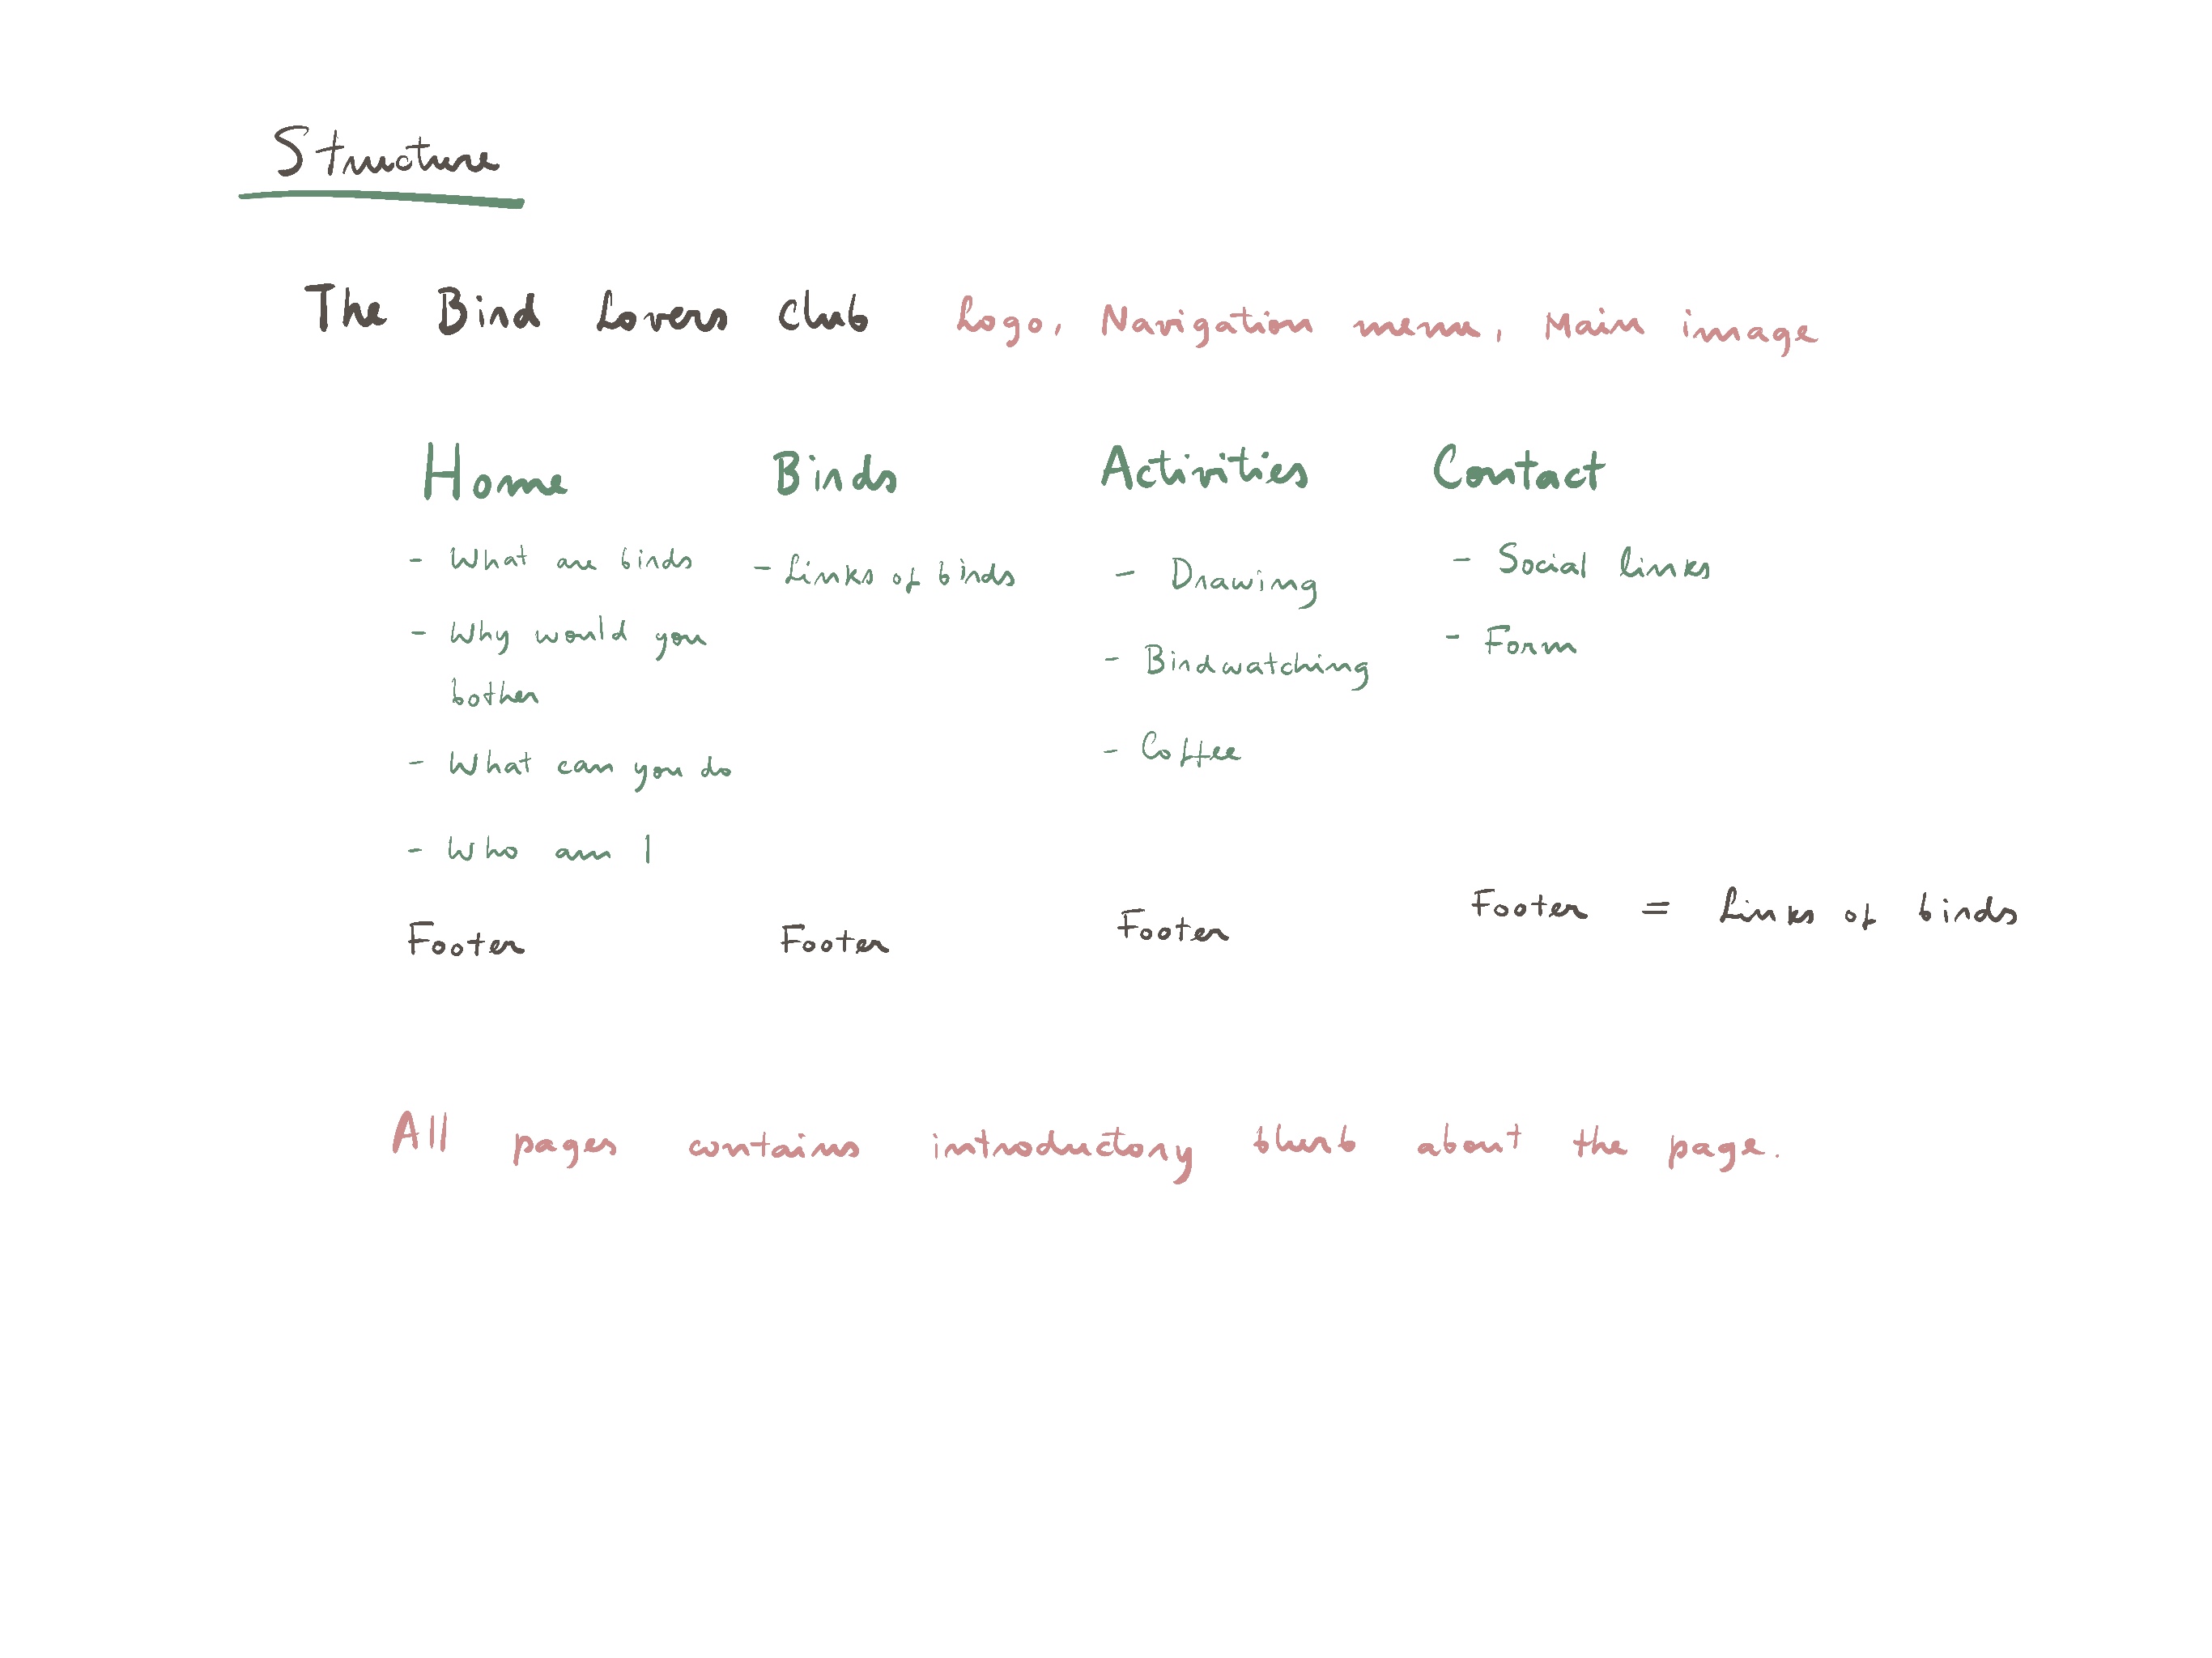 Structure
The Bird Lovers Club Logo, Navigation menu, Main image
Home Birds Activities Contact
- What are birds
- Why would you
bother
- What can you do
- Who am I
Footer
- Links of birds
Footer
- Drawing
- Birdwatching
- Coffee
Footer
- Social links
- Form
Footer = Links of birds
All pages contains introductory blurb about the page.